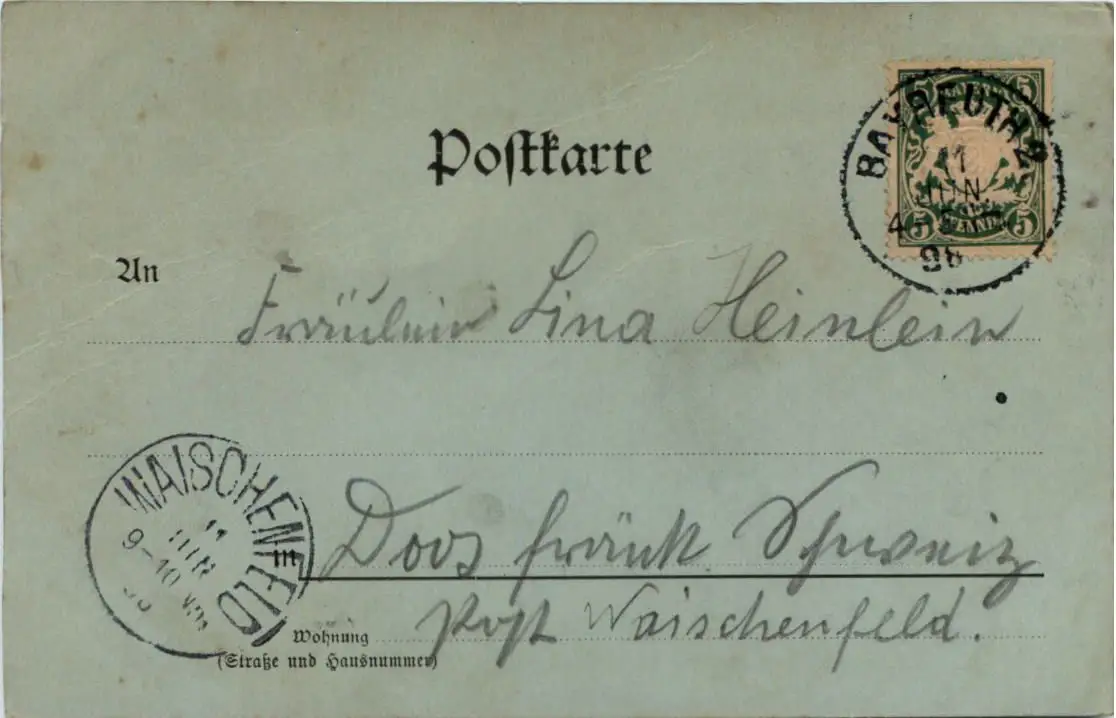 Postkarte
5 5
BAYREUTH 2
11
JUN
4-5
98
5 5
An
Fräulein Lina Heinlein
WAISCHENFELD
11
JUN
9-10
in Doos fränk. Schweiz
Wohnung
Post Waischenfeld.
(Straße und Hausnummer)